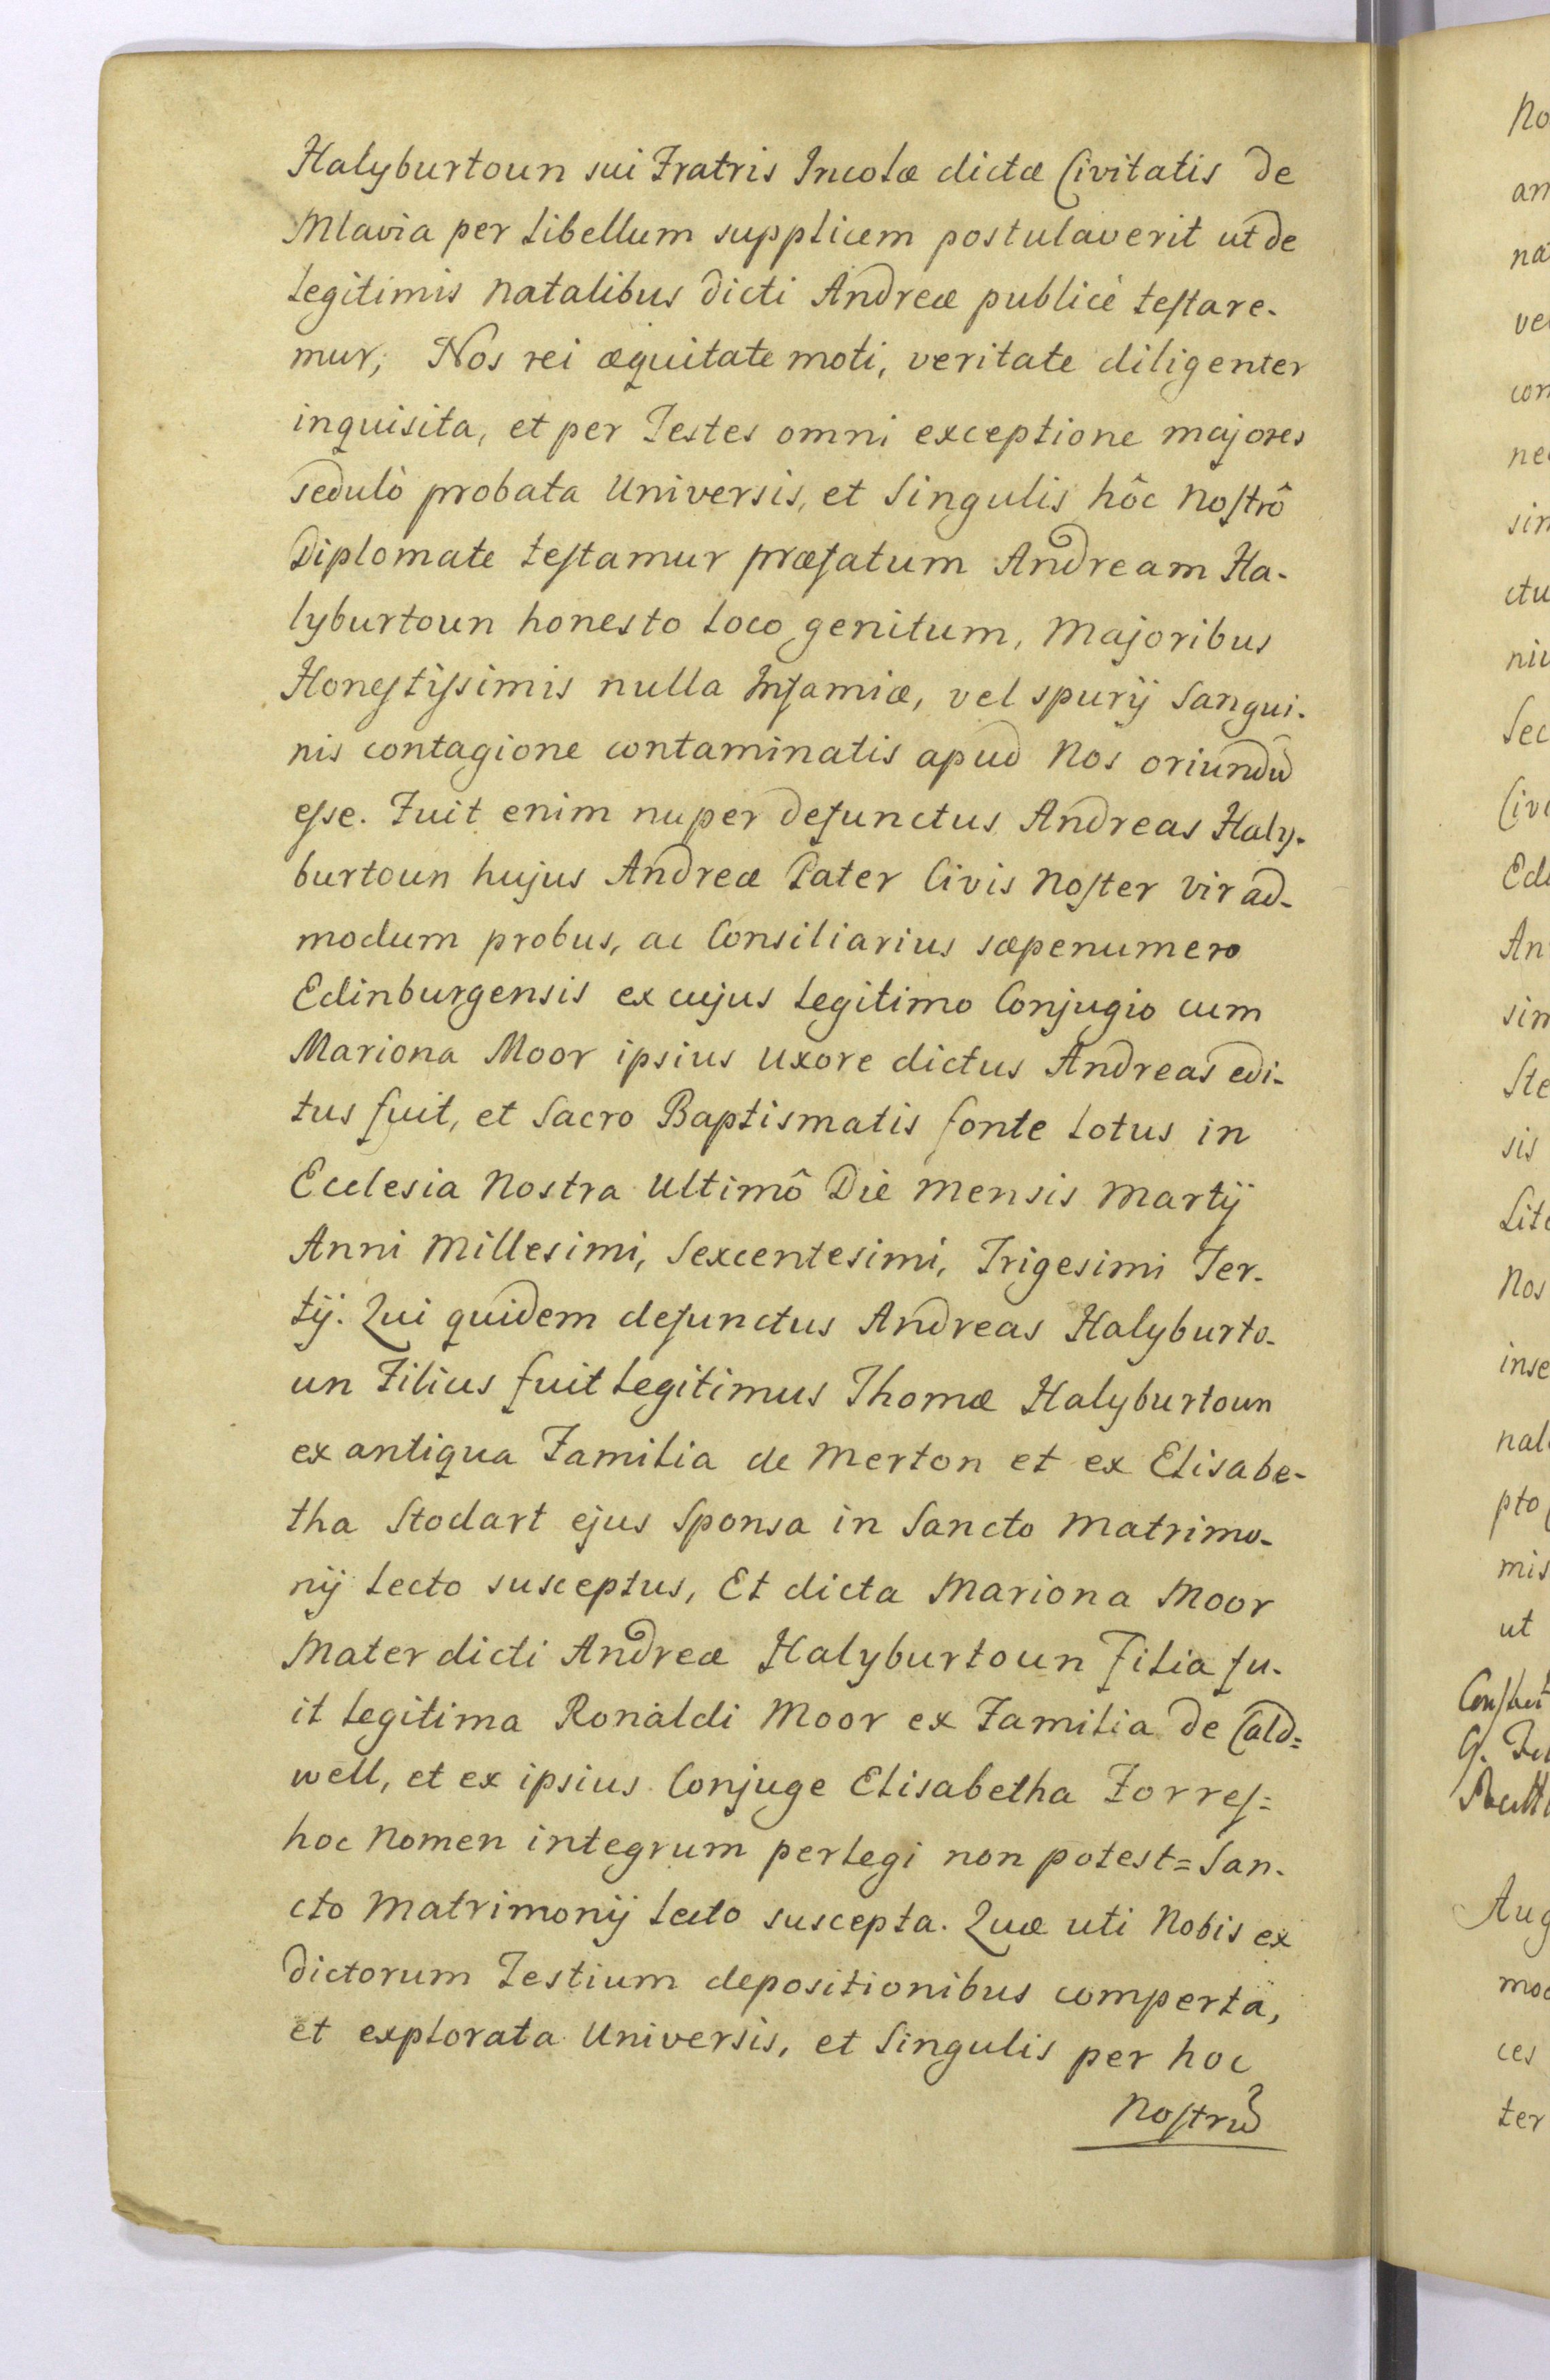 Halyburtoun sui Fratris Incolæ dictæ Civitatis de
Mlavia per Libellum supplicem postulaverit ut de
Legitimis Natalibus dicti Andreæ publicè teſtare-
mur; Nos rei æquitate moti, veritate diligenter
inquisita, et per Testes omni exceptione majores
sedulò probata Universis, et Singulis hôc Noſtrô
Diplomate teſtamur præfatum Andream Ha-
lyburtoun honesto Loco genitum, Majoribus
Honeſtiſsimis nulla Infamiæ, vel spurij Sangui-
nis contagione contaminatis apud Nos oriundū
eſse. Fuit enim nuper defunctus Andreas Haly-
burtoun hujus Andreæ Pater Civis Noſter Vir ad-
modum probus, ac Consiliarius sæpenumero
Edinburgensis ex cujus Legitimo Conjugio cum
Mariona Moor ipsius Uxore dictus Andreas edi-
tus fuit, et Sacro Baptismatis fonte Lotus in
Ecclesia Nostra Ultimô Die Mensis Martij
Anni Millesimi, Sexcentesimi, Trigesimi Ter-
tij. Qui quidem defunctus Andreas Halyburto-
un Filius fuit Legitimus Thomæ Halyburtoun
ex antiqua Familia de Merton et ex Elisabe-
tha Stodart ejus Sponsa in Sancto Matrimo-
nij Lecto susceptus, Et dicta Mariona Moor
Mater dicti Andreæ Halyburtoun Filia fu-
it Legitima Ronaldi Moor ex Familia de Cald=
well, et ex ipsius Conjuge Elisabetha Forreſ=
hoc Nomen integrum perlegi non potest= San-
cto Matrimonij Lecto suscepta. Quæ uti Nobis ex
dictorum Testium depositionibus comperta,
et explorata Universis, et Singulis per hoc
Noſtrū
No
an
na
ve
con
ne
sin
ctu
niu
Sec
Civi
Edi
An
sin
Ste
sis
Lite
Nos
inse
nal
pto
mis
ut
Aug
mod
ces
ter